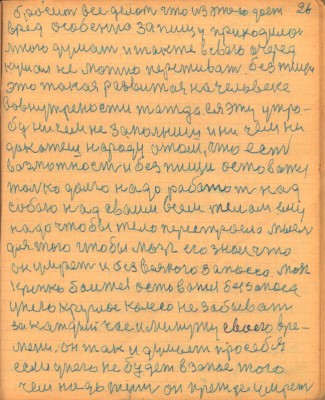 26
бросит все делат что из этого дает
вред особенно за пищу приходилос
много думат и также в свою очеред
кушал не можно переживат без пищи
это такая развитая на человека
во внутрености
бу ничем не заполниш и ни чем ни
докажеш народу о том, что ест
возможност и без пищи остоватся
толко долго надо работат над
собою над своим всем телом ему
надо чтобы тело перестроело
для того чтобы мозг его знал что
он умрет и без всякого запасса.
крепко боится остоватся без запоса
у него круглое колесо не забиват
за каждый час и минуту своего вре-
мени. он так и думает про себя
если у него не будет в запасе того
чем надо
он прежде умрет